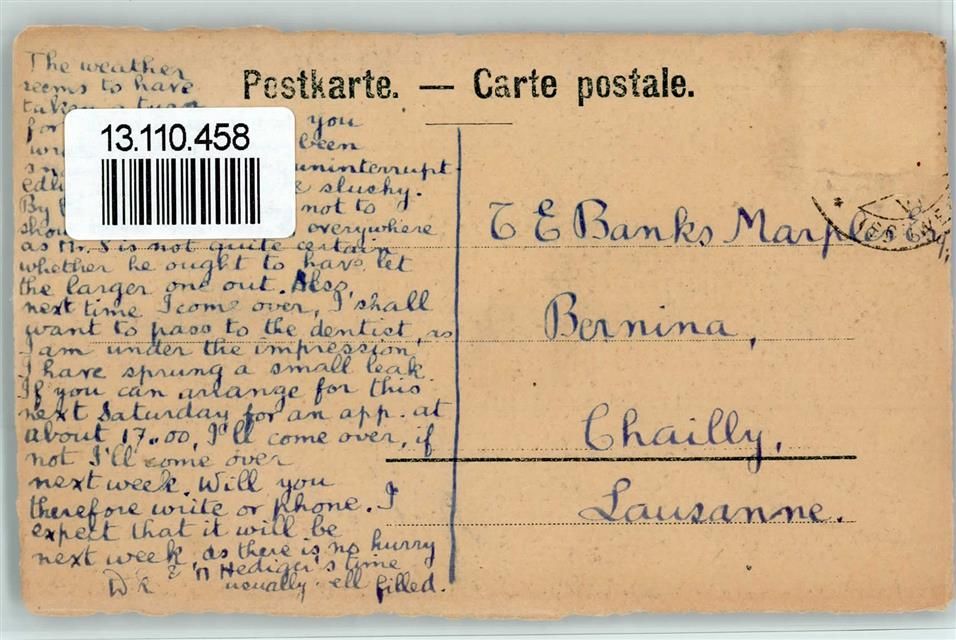 Postkarte. — Carte postale.
13.110.458
The weather
seems to have
taken a turn
for you
been
uninterrupt
edl & slushy.
By not to
everywhere
as Mr. S is not quite certain
whether he ought to have let
the larger one out. Also
next time I come over, I shall
want to pass to the dentist, as
I am under the impression
I have sprung a small leak.
If you can arrange for this
next Saturday for an app. at
about 17.00, I'll come over, if
not I'll come over
next week. Will you
therefore write or phone. I
expect that it will be
next week, as there is no hurry
& Hediger's time
usually filled.
T E Banks Marple Esq.
Bernina,
Chailly,
Lausanne.